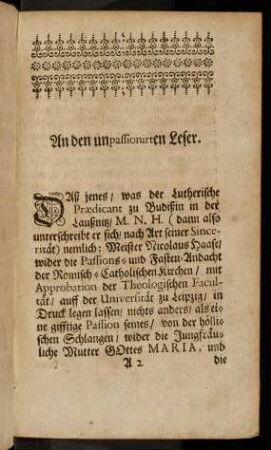 An den unpassionirten Leser.
DAß jenes / was der Lutherische
Prædicant zu Budißin in der
Laußnitz / M. N. H. ( dann also
unterschreibt er sich / nach Art seiner Since-
rität) nemlich: Meister Nicolaus Haase /
wider die Passions- und Fasten-Andacht
der Römisch-Catholischen Kirchen / mit
Approbation der Theologischen Facul-
tät / auff der Universität zu Leipzig / in
Druck legen lassen / nichts anders / als ei-
ne gifftige Passion seines / von der hölli-
schen Schlangen / wider die Jungfräu-
liche Mutter GOttes MARIA, und
A 2 die